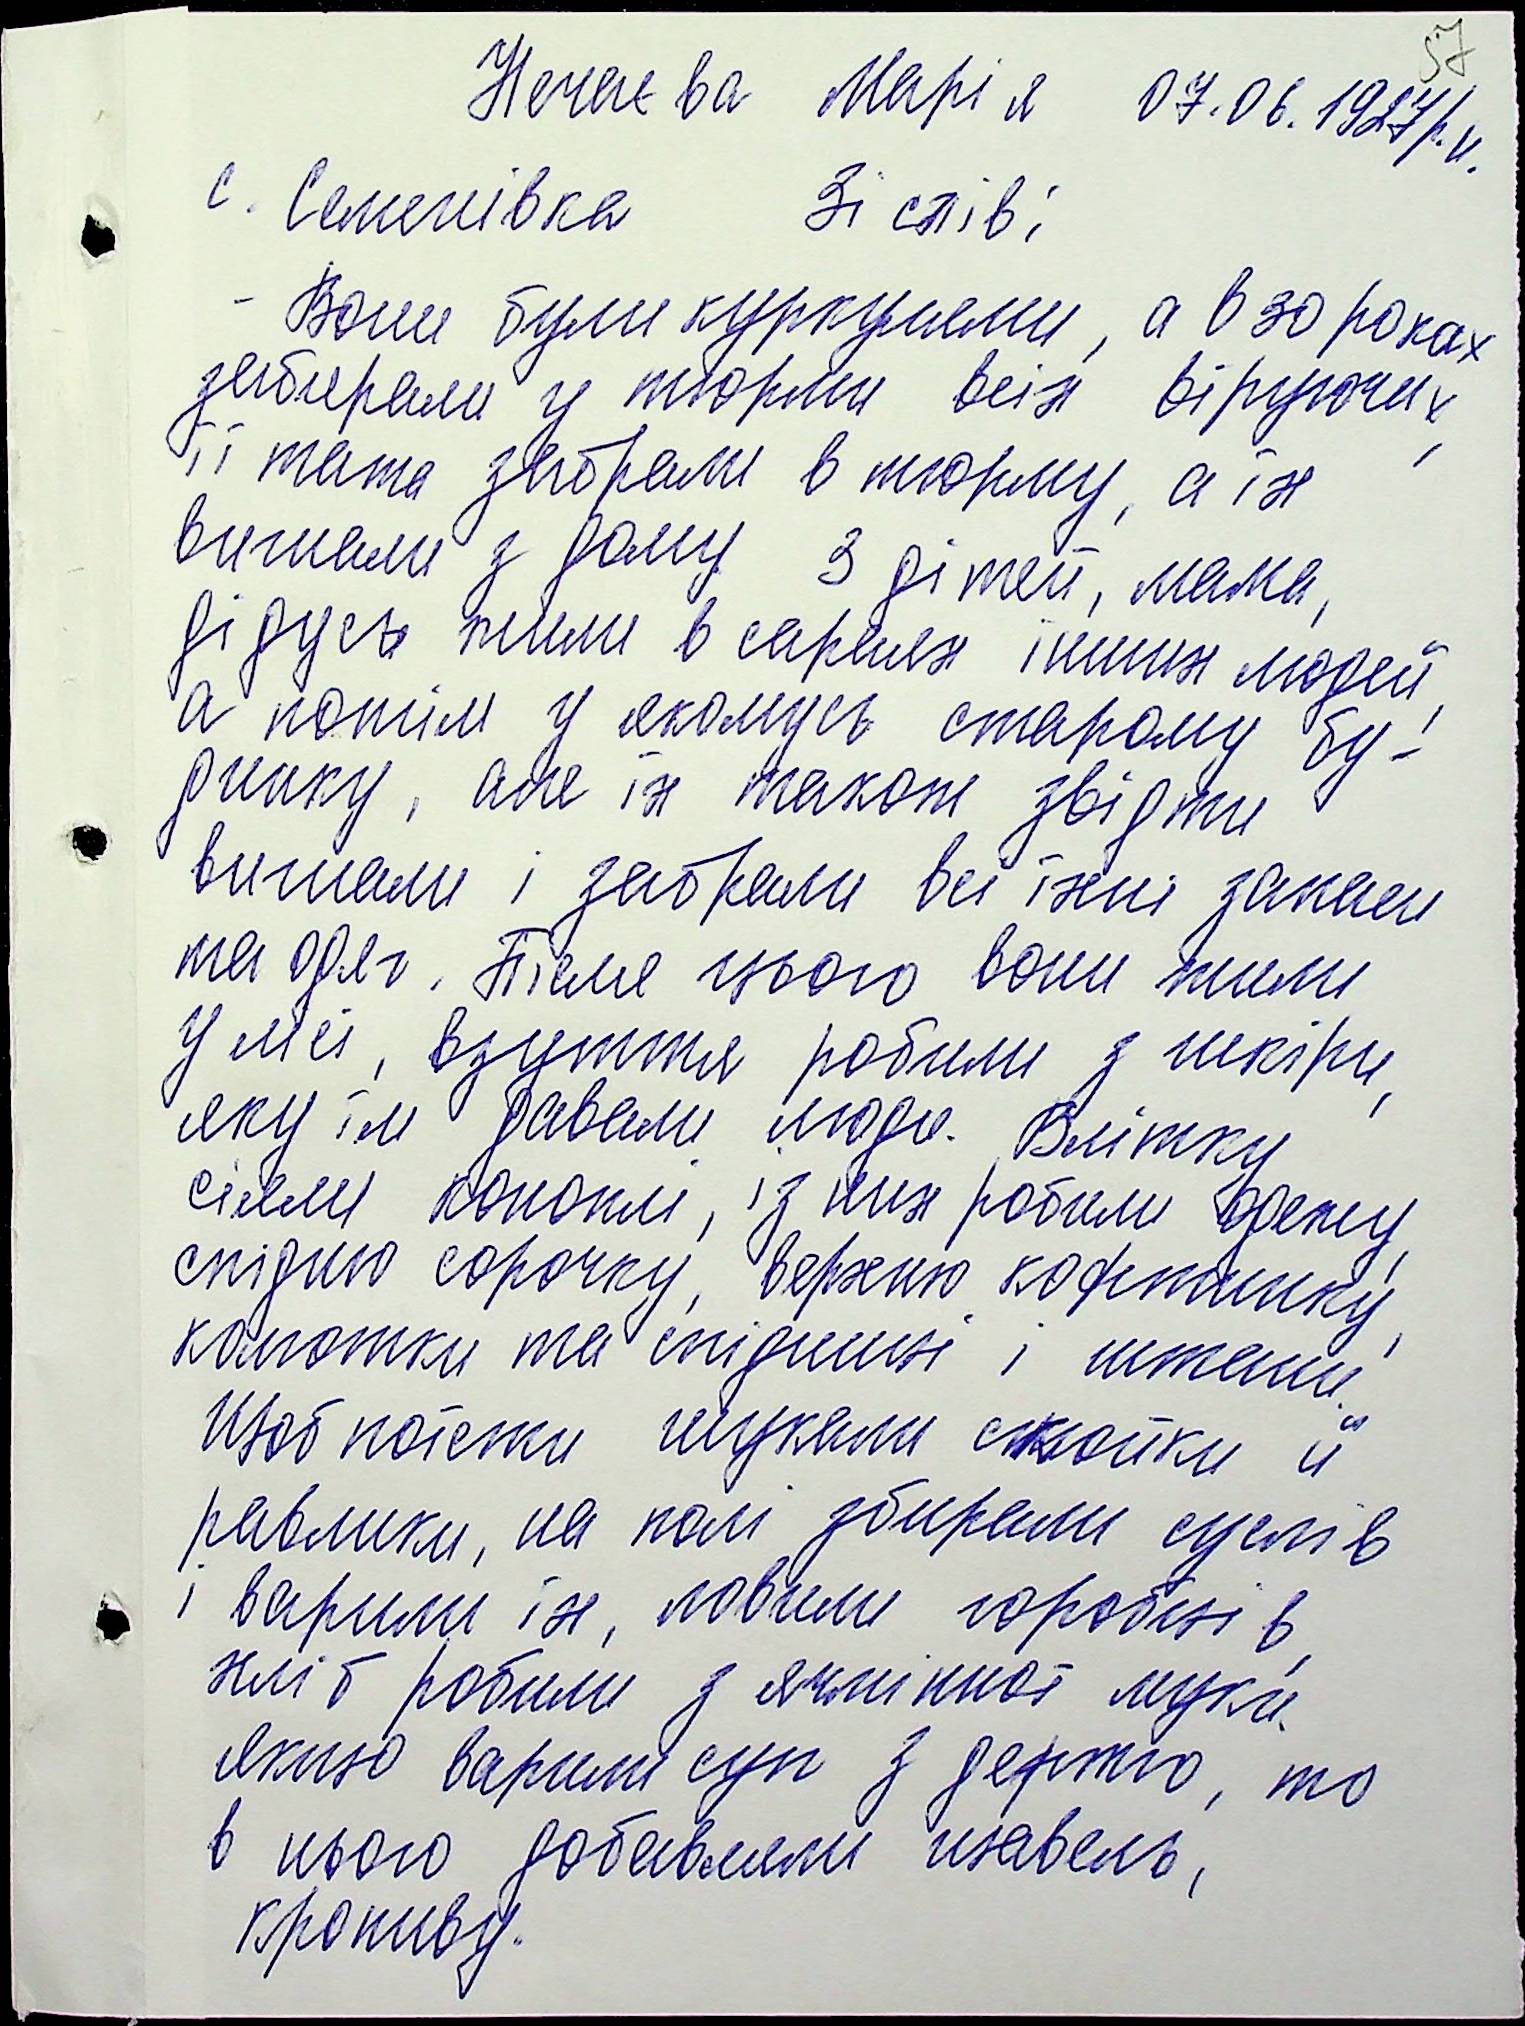 57
Нечаєва Марія 07.06.1927р.н.
с. Семенівка Зі слів:
- Вони були куркулями, а в 30 роках
забирали у тюрми всіх віруючих,
її тата забрали в тюрму, а їх
вигнали з дому. 3 дітей, мама,
дідусь жили в сараях інших людей,
а потім у якомусь старому бу-
динку, але їх також звідти
вигнали і забрали всі їхні запаси
та одяг. Після цього вони жили
у лісі, взуття робили з шкіри,
яку їм давали люди. Влітку
сіяли коноплі, із них робили одежу,
спідню сорочку, верхню кофтинку,
колготки та спідниці і штани.
Щоб поїсти шукали скойки й
равлики, на полі збирали суслів
і варили їх, ловили горобців,
хліб робили з ячмінної муки.
якщо варили суп з дертю, то
в нього добавляли щавель,
кропиву.